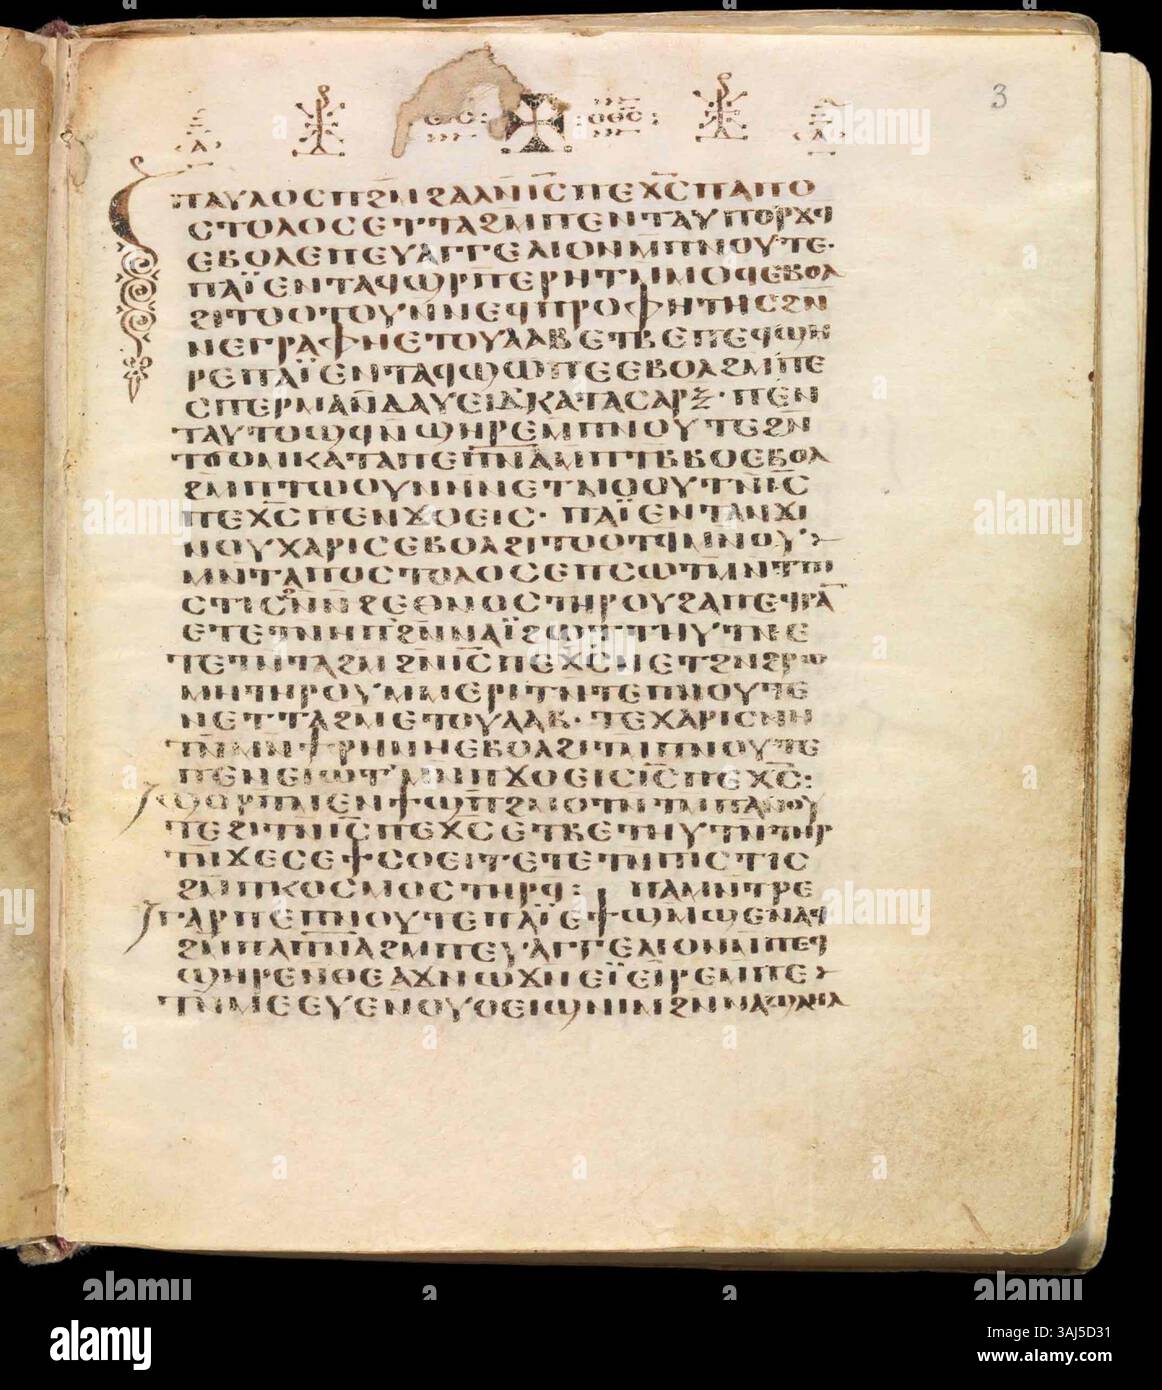 3
ⲡⲁⲩⲗⲟⲥ ⲡϩⲙϩⲁⲗ ⲛⲓ̅ⲥ̅ ⲡⲉⲭ̅ⲥ̅ ⲡⲁⲡⲟ
ⲥⲧⲟⲗⲟⲥ ⲉⲧⲧⲁϩⲙ ⲡⲉⲛⲧⲁⲩⲡⲟⲣϫϥ
ⲉⲃⲟⲗ ⲉⲡⲉⲩⲁⲅⲅⲉⲗⲓⲟⲛ ⲙⲡⲛⲟⲩⲧⲉ·
ⲡⲁⲓ̈ ⲉⲛⲧⲁϥϣⲣⲡⲉⲣⲏⲧ ⲙⲙⲟϥ ⲉⲃⲟⲗ
ϩⲓⲧⲟⲟⲧⲟⲩ ⲛⲛⲉϥⲡⲣⲟⲫⲏⲧⲏⲥ ϩⲛ
ⲛⲉⲅⲣⲁⲫⲏ ⲉⲧⲟⲩⲁⲁⲃ ⲉⲧⲃⲉ ⲡⲉϥϣⲏ
ⲣⲉ ⲡⲁⲓ̈ ⲉⲛⲧⲁϥϣⲱⲡⲉ ⲉⲃⲟⲗ ϩⲙ ⲡⲉ
ⲥⲡⲉⲣⲙⲁ ⲛⲇⲁⲩⲉⲓⲇ ⲕⲁⲧⲁ ⲥⲁⲣⲝ· ⲡⲉⲛ
ⲧⲁⲩⲧⲟϣϥ ⲛϣⲏⲣⲉ ⲙⲡⲛⲟⲩⲧⲉ ϩⲛ
ⲧϭⲟⲙ ⲕⲁⲧⲁ ⲡⲉⲡ̅ⲛ̅ⲁ̅ ⲙⲡⲧⲃⲃⲟ ⲉⲃⲟⲗ
ϩⲙ ⲡⲧⲱⲟⲩⲛ ⲛⲛⲉⲧⲙⲟⲟⲩⲧ ⲛⲓ̅ⲥ̅
ⲡⲉⲭ̅ⲥ̅ ⲡⲉⲛϫⲟⲉⲓⲥ· ⲡⲁⲓ̈ ⲉⲛⲧⲁⲛϫⲓ
ⲛⲟⲩⲭⲁⲣⲓⲥ ⲉⲃⲟⲗ ϩⲓⲧⲟⲟⲧϥ ⲙⲛ ⲟⲩ
ⲙⲛⲧⲁⲡⲟⲥⲧⲟⲗⲟⲥ ⲉⲡⲥⲱⲧⲙ ⲛⲧⲡⲓ
ⲥⲧⲓⲥ ϩⲛ ⲛϩⲉⲑⲛⲟⲥ ⲧⲏⲣⲟⲩ ϩⲁ ⲡⲉϥⲣⲁⲛ
ⲉⲧⲉⲧⲛⲏⲡ ϩⲛ ⲛⲁⲓ̈ ϩⲱⲧⲧⲏⲩⲧⲛ ⲉ
ⲧⲉⲧⲛⲧⲁϩⲙ ϩⲛ ⲓ̅ⲥ̅ ⲡⲉⲭ̅ⲥ̅ ⲛⲉⲧϩⲛ ϩⲣⲱ
ⲙⲏ ⲧⲏⲣⲟⲩ ⲙⲙⲉⲣⲓⲧ ⲛⲧⲉ ⲡⲛⲟⲩⲧⲉ
ⲛⲉⲧⲧⲁϩⲙ ⲉⲧⲟⲩⲁⲁⲃ· ⲧⲉⲭⲁⲣⲓⲥ ⲛⲏ
ⲧⲛ ⲙⲛ ϯⲣⲏⲛⲏ ⲉⲃⲟⲗ ϩⲓⲧⲙ ⲡⲛⲟⲩⲧⲉ
ⲡⲉⲛⲉⲓⲱⲧ ⲙⲛ ⲡϫⲟⲉⲓⲥ ⲓ̅ⲥ̅ ⲡⲉⲭ̅ⲥ̅:
ϣⲟⲣⲡ ⲙⲉⲛ ϯϣⲡϩⲙⲟⲧ ⲛⲧⲙ ⲡⲁⲛⲟⲩ
ⲧⲉ ϩⲓⲧⲛ ⲓ̅ⲥ̅ ⲡⲉⲭ̅ⲥ̅ ⲉⲧⲃⲉ ⲧⲏⲩⲧⲛ ⲧⲏⲣ
ⲧⲛ ϫⲉ ⲥⲉϯⲥⲟⲉⲓⲧ ⲉⲧⲉⲧⲛⲡⲓⲥⲧⲓⲥ
ϩⲙ ⲡⲕⲟⲥⲙⲟⲥ ⲧⲏⲣϥ: ⲡⲁⲙⲛⲧⲣⲉ
ⲅⲁⲣ ⲡⲉ ⲡⲛⲟⲩⲧⲉ ⲡⲁⲓ̈ ⲉϯϣⲙϣⲉ ⲛⲁϥ
ϩⲙ ⲡⲁⲡ̅ⲛ̅ⲁ̅ ϩⲙ ⲡⲉⲩⲁⲅⲅⲉⲗⲓⲟⲛ ⲙⲡⲉϥ
ϣⲏⲣⲉ ⲛⲑⲉ ⲁϫⲛ ⲱϫⲛ ⲉⲓ̈ⲉⲓⲣⲉ ⲙⲡⲉ
ⲧⲛⲙⲉⲉⲩⲉ ⲛⲟⲩⲟⲉⲓϣ ⲛⲓⲙ ϩⲛ ⲛⲁϣⲗⲏⲗ
alamy
Image ID: 3AJ5D31
www.alamy.com